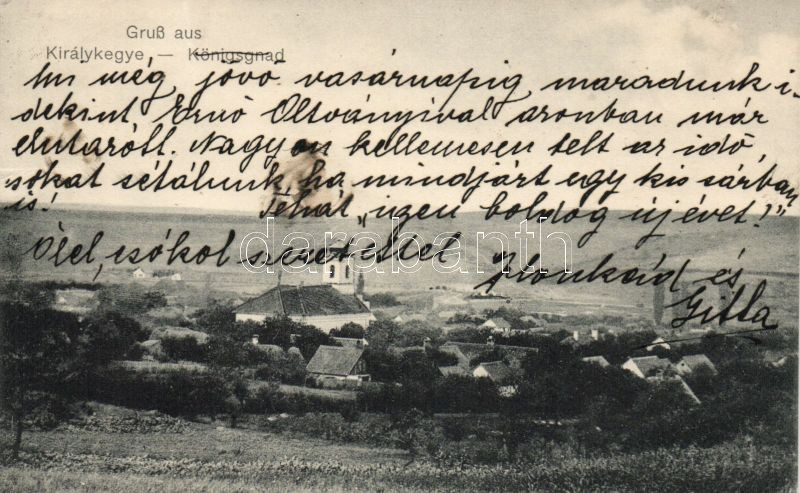 Gruß aus
Királykegye, — Königsgnad
Mi még jövő vasárnapig maradunk i-
dekint, Ernő Oltványival azonban már
elutazott. Nagyon kellemesen telt az idő,
sokat sétálunk, ha mindjárt egy kis sárban
is! Tehát „igen boldog új évet!”
Ölel, csókol szeretettel Ilonkád és
Gitta
darabanth